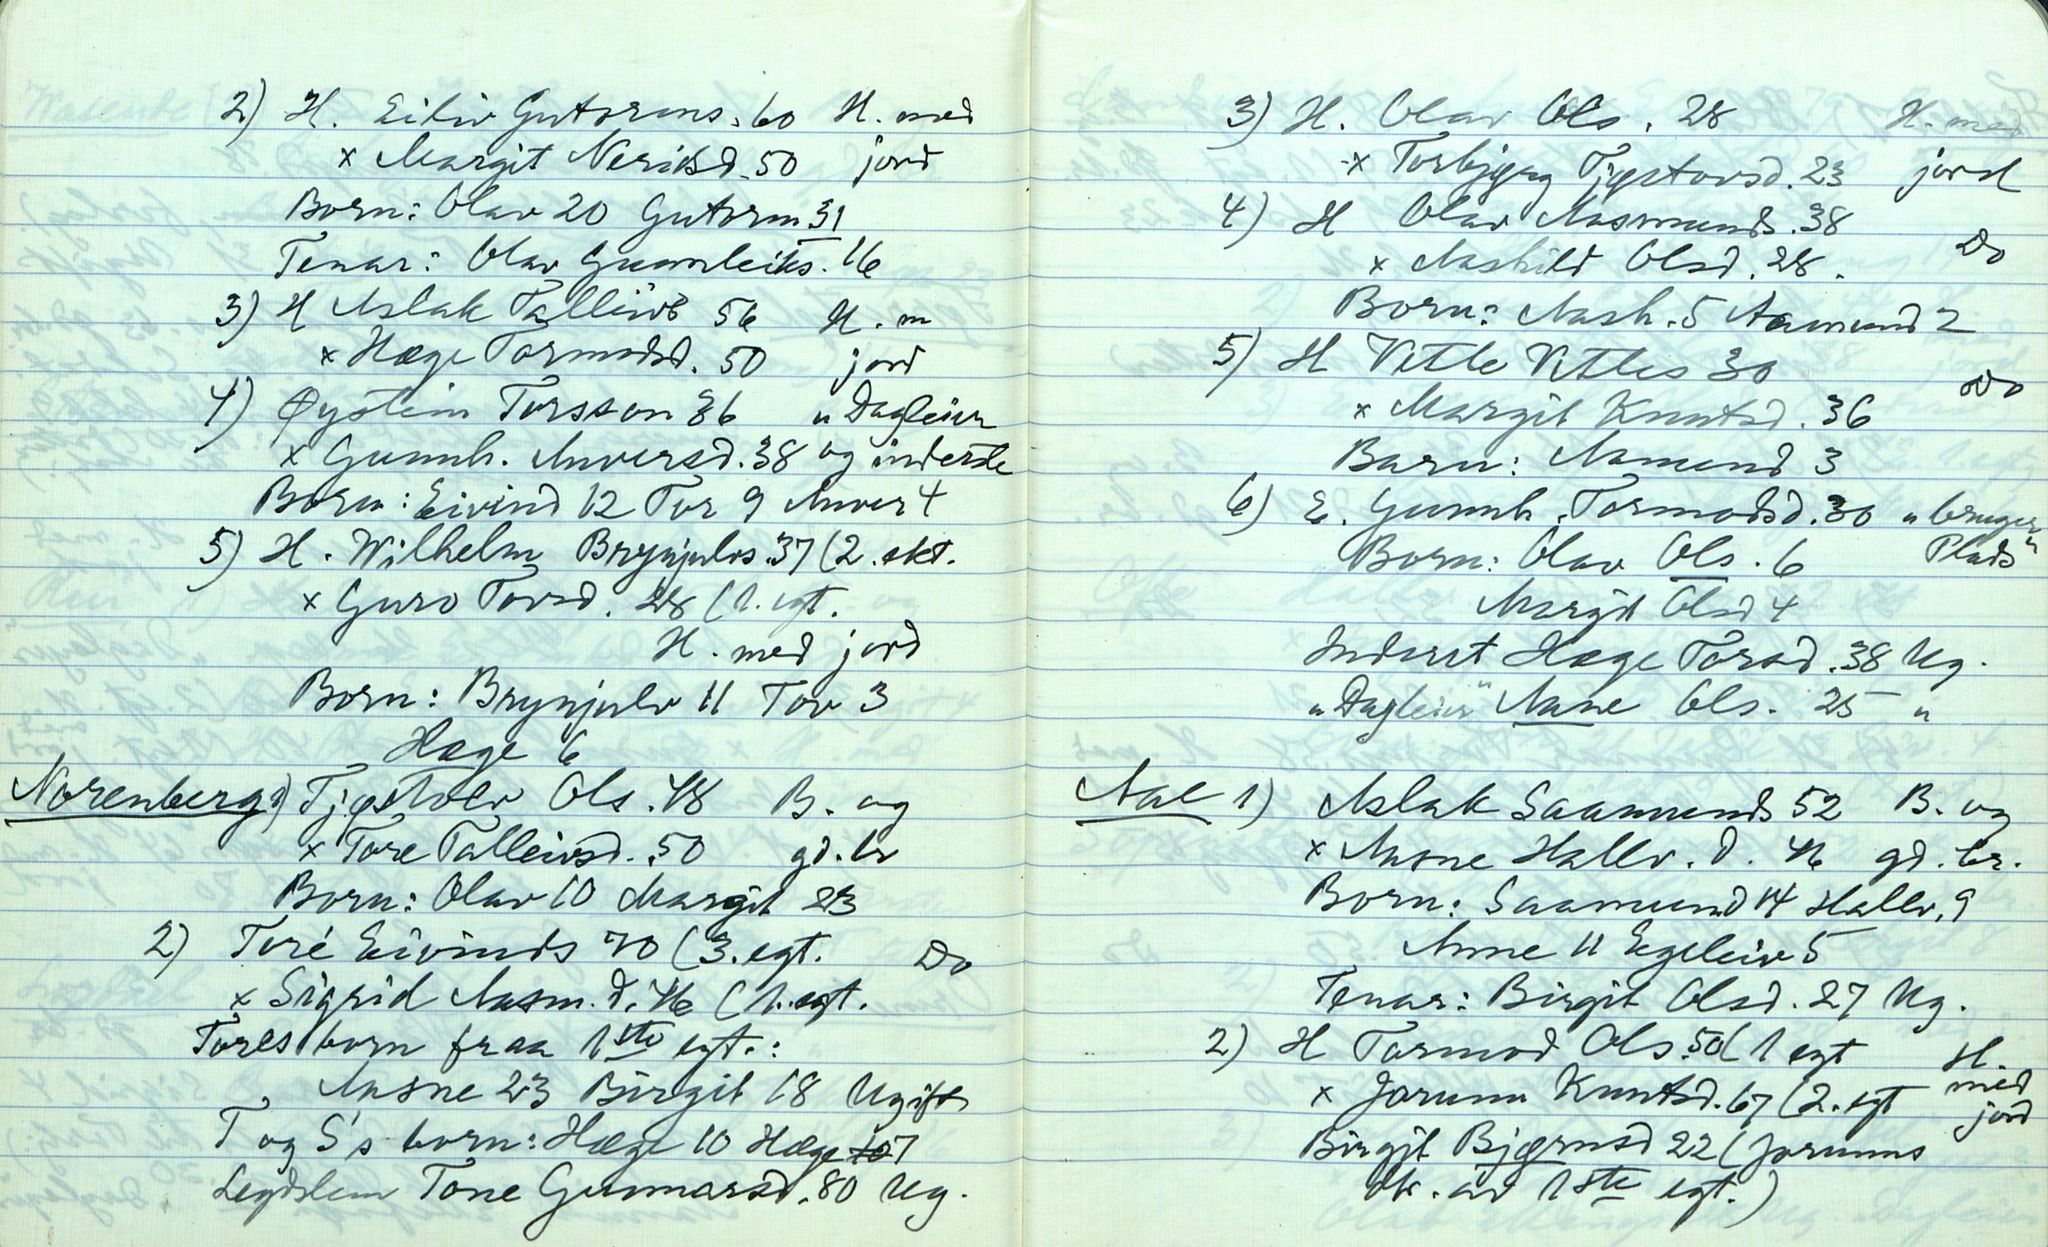 2) H. Eiliv Gutorms. 60 H. med
x Margit Neridsd. 50 jord
Born: Olav 20 Gutorm 31
Tenar: Olav Gunnleiks. 16
3) H Aslak Talleivs 56 H. m
x Hæge Tormodsd. 50 jord
4) Øystein Torsson 36 "Dagleier
x Gunnh. Anversd. 38 og inderste
Born: Eivind 12 Tor 9 Anver 4
5) H. Wilhelm Brynjulvs. 37 (2. ekt.
x Guro Torsd. 28 (1. egt.
H. med jord
Born: Brynjulv 11 Tov 3
Hæge 6
Norenberg 1) Tjøstolv Ols. 48 B. og
x Tore Talleivsd. 50 gd. br
Born: Olav 10 Margit 23
2) Toré Eivinds 70 (3. egt. Do
x Sigrid Aasm. d. 46 (1. egt.
Tores born fraa 1ste egt.:
Aasne 23 Birgit 18 Ugift
T og S's born: Hæge 10 Hæge 7
Legdslem Tone Gunnarsd. 80 Ug.
3) H. Olav Ols. 28 H. med
x Torbjørg Tjøstovsd. 23 jord
4) H Olav Aasmunds. 38 Do
x Aashild Olsd. 28.
Born: Aash. 5 Aamund 2
5) H Vetle Vetles 30 Do
x Margit Knutsd. 36
Barn: Aamund 3
6) E. Gunnh. Tormodsd. 30 "bruger
Born: Olav Ols. 6 Plads"
Margit Olsd 4
Inderst Hæge Torsd. 38 Ug.
"Dagleier" Aane Ols. 25 "
Aae 1) Aslak Saamunds 52 B. og
x Aasne Hallv. d. 46 gd. br.
Born: Saamund 14 Hallv. 9
Anne 11 Egeleiv 5
Tenar: Birgit Olsd. 27 Ug.
2) H Tormod Ols. 50 (1 egt H.
x Jorunn Knutsd. 67 (2. egt med
Birgit Bjørnsd 22 (Jorunns jord
dtr. av 1ste egt.)